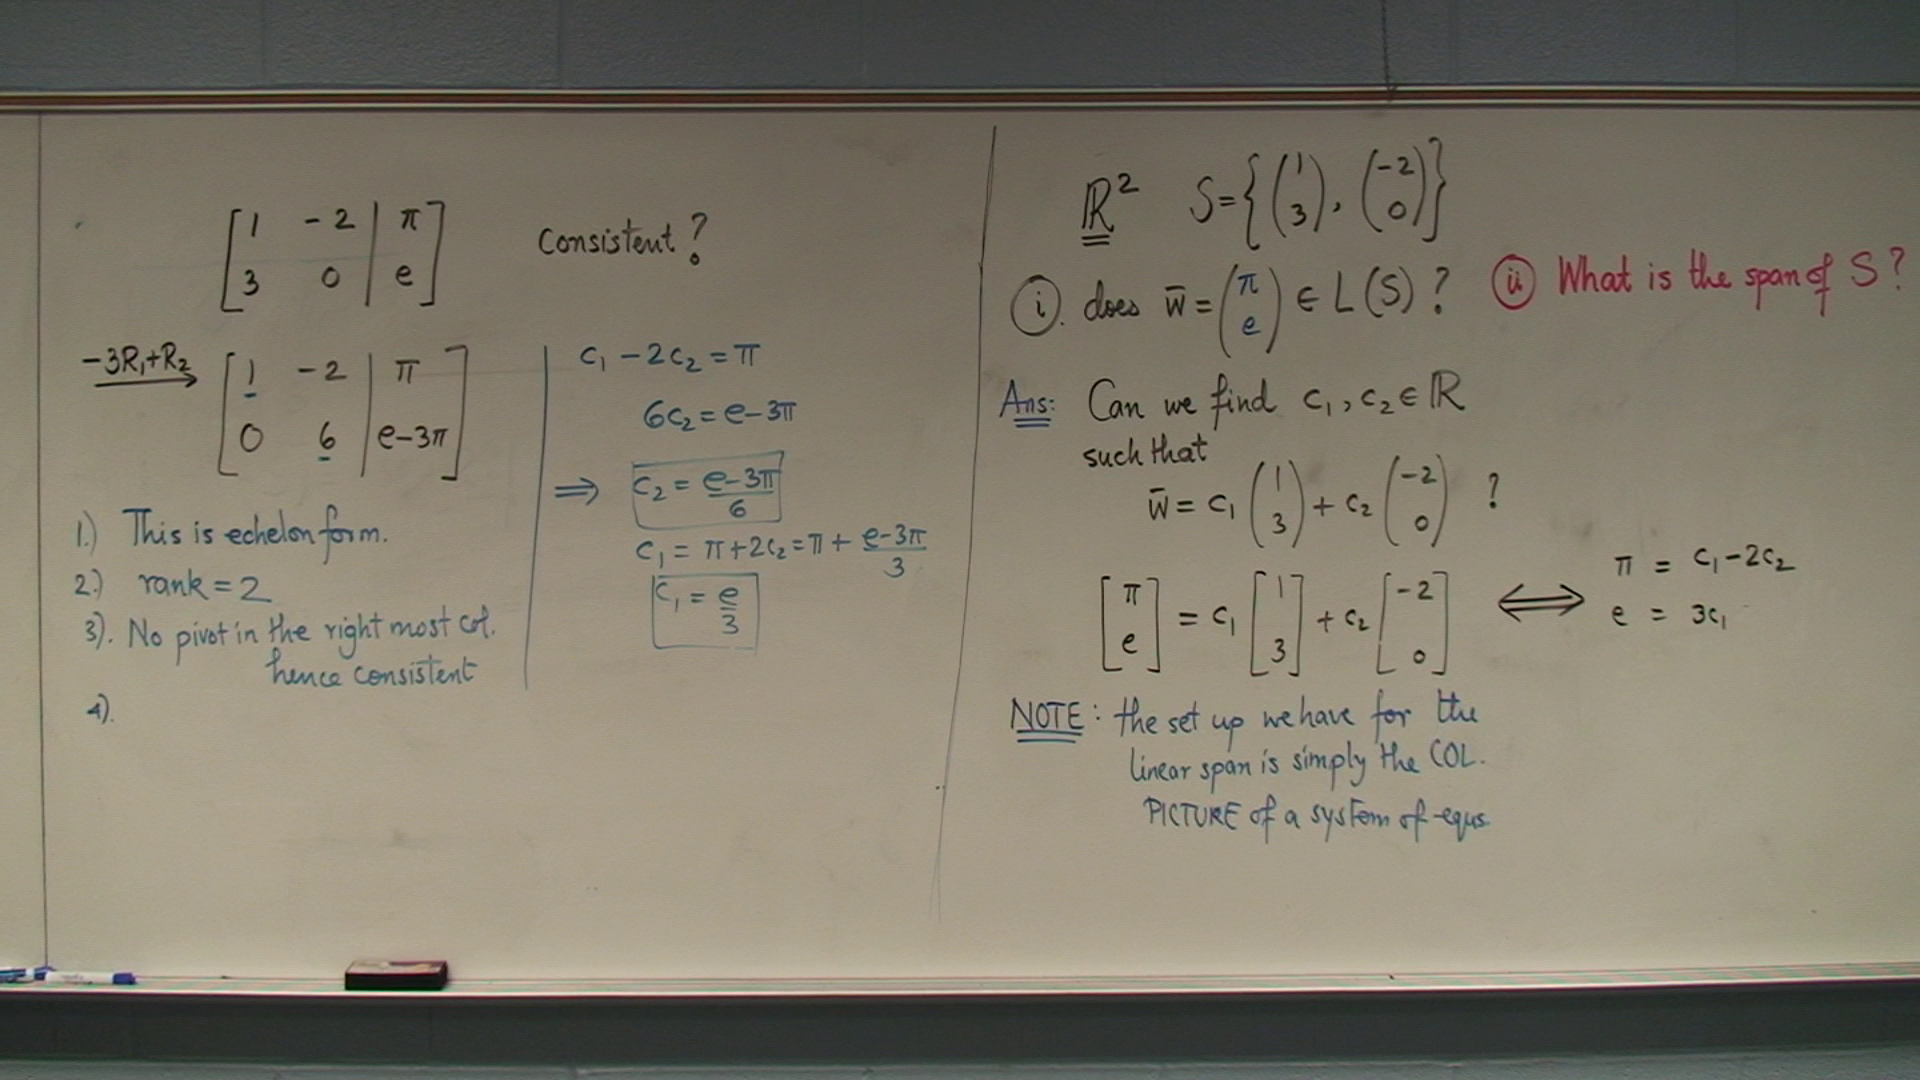 [1 -2 | π]
[3 0 | e]
Consistent?
-3R₁+R₂
[1 -2 | π]
[0 6 | e-3π]
1.) This is echelon form.
2.) rank = 2
3). No pivot in the right most col.
hence consistent
4).
c₁ - 2c₂ = π
6c₂ = e-3π
⇒ c₂ = (e-3π)/6
c₁ = π+2c₂ = π + (e-3π)/3
c₁ = e/3
ℝ² S = {(1 3), (-2 0)}
(i). does w̄ = (π e) ∈ L(S)?
(ii) What is the span of S?
Ans: Can we find c₁, c₂ ∈ ℝ
such that
w̄ = c₁ (1 3) + c₂ (-2 0) ?
[π e] = c₁ [1 3] + c₂ [-2 0] ⟺
π = c₁-2c₂
e = 3c₁
NOTE: the set up we have for the
linear span is simply the COL.
PICTURE of a system of eqns.